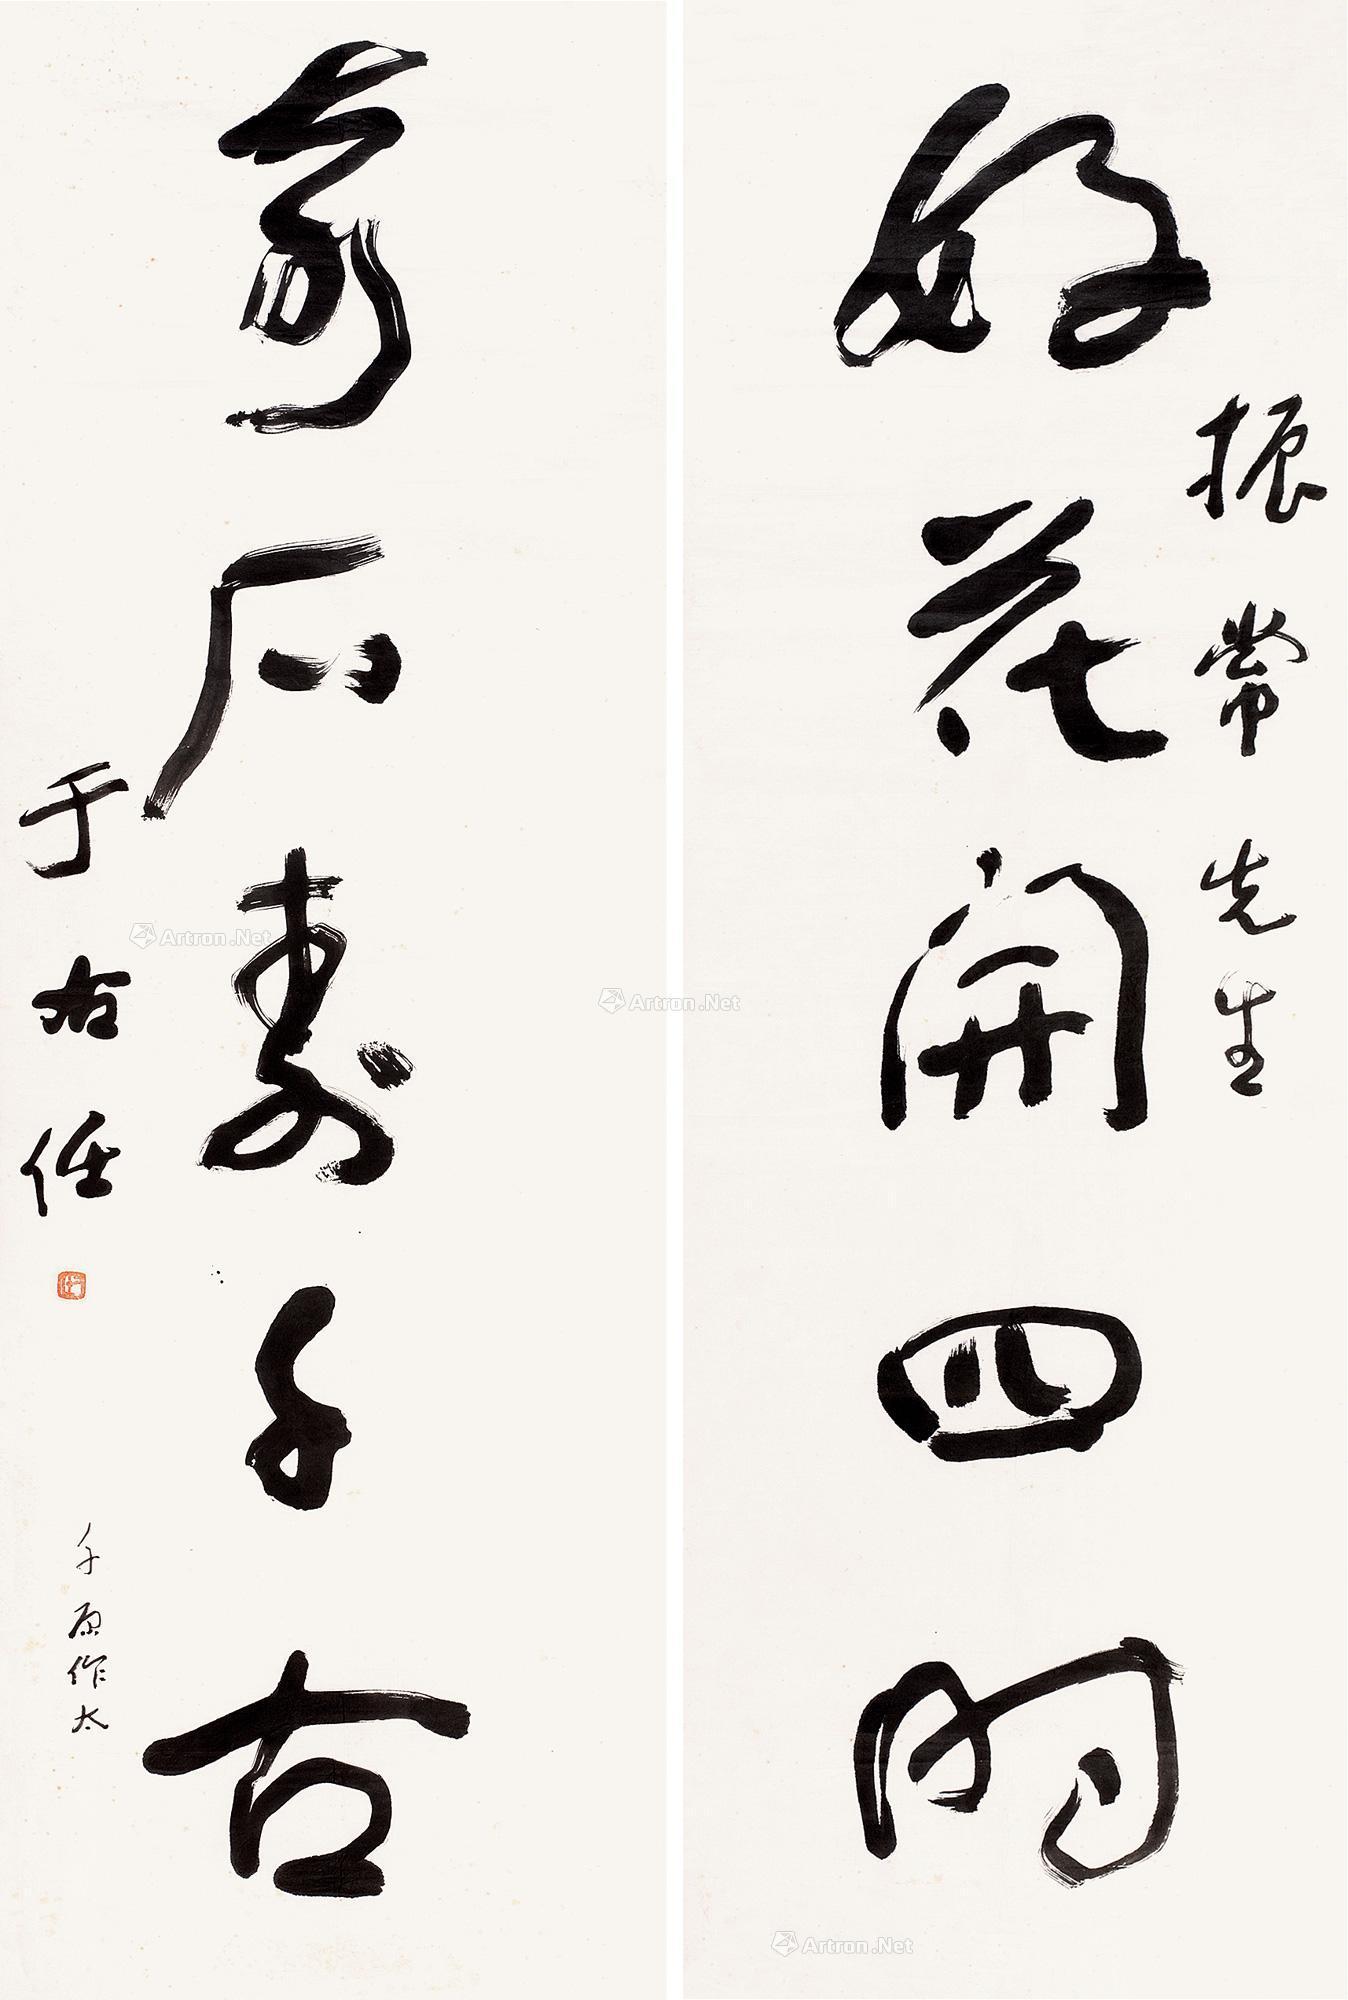 振常先生
好花開四時
奇石壽千古
于右任
千原作太
Artron.Net
Artron.Net
Artron.Net